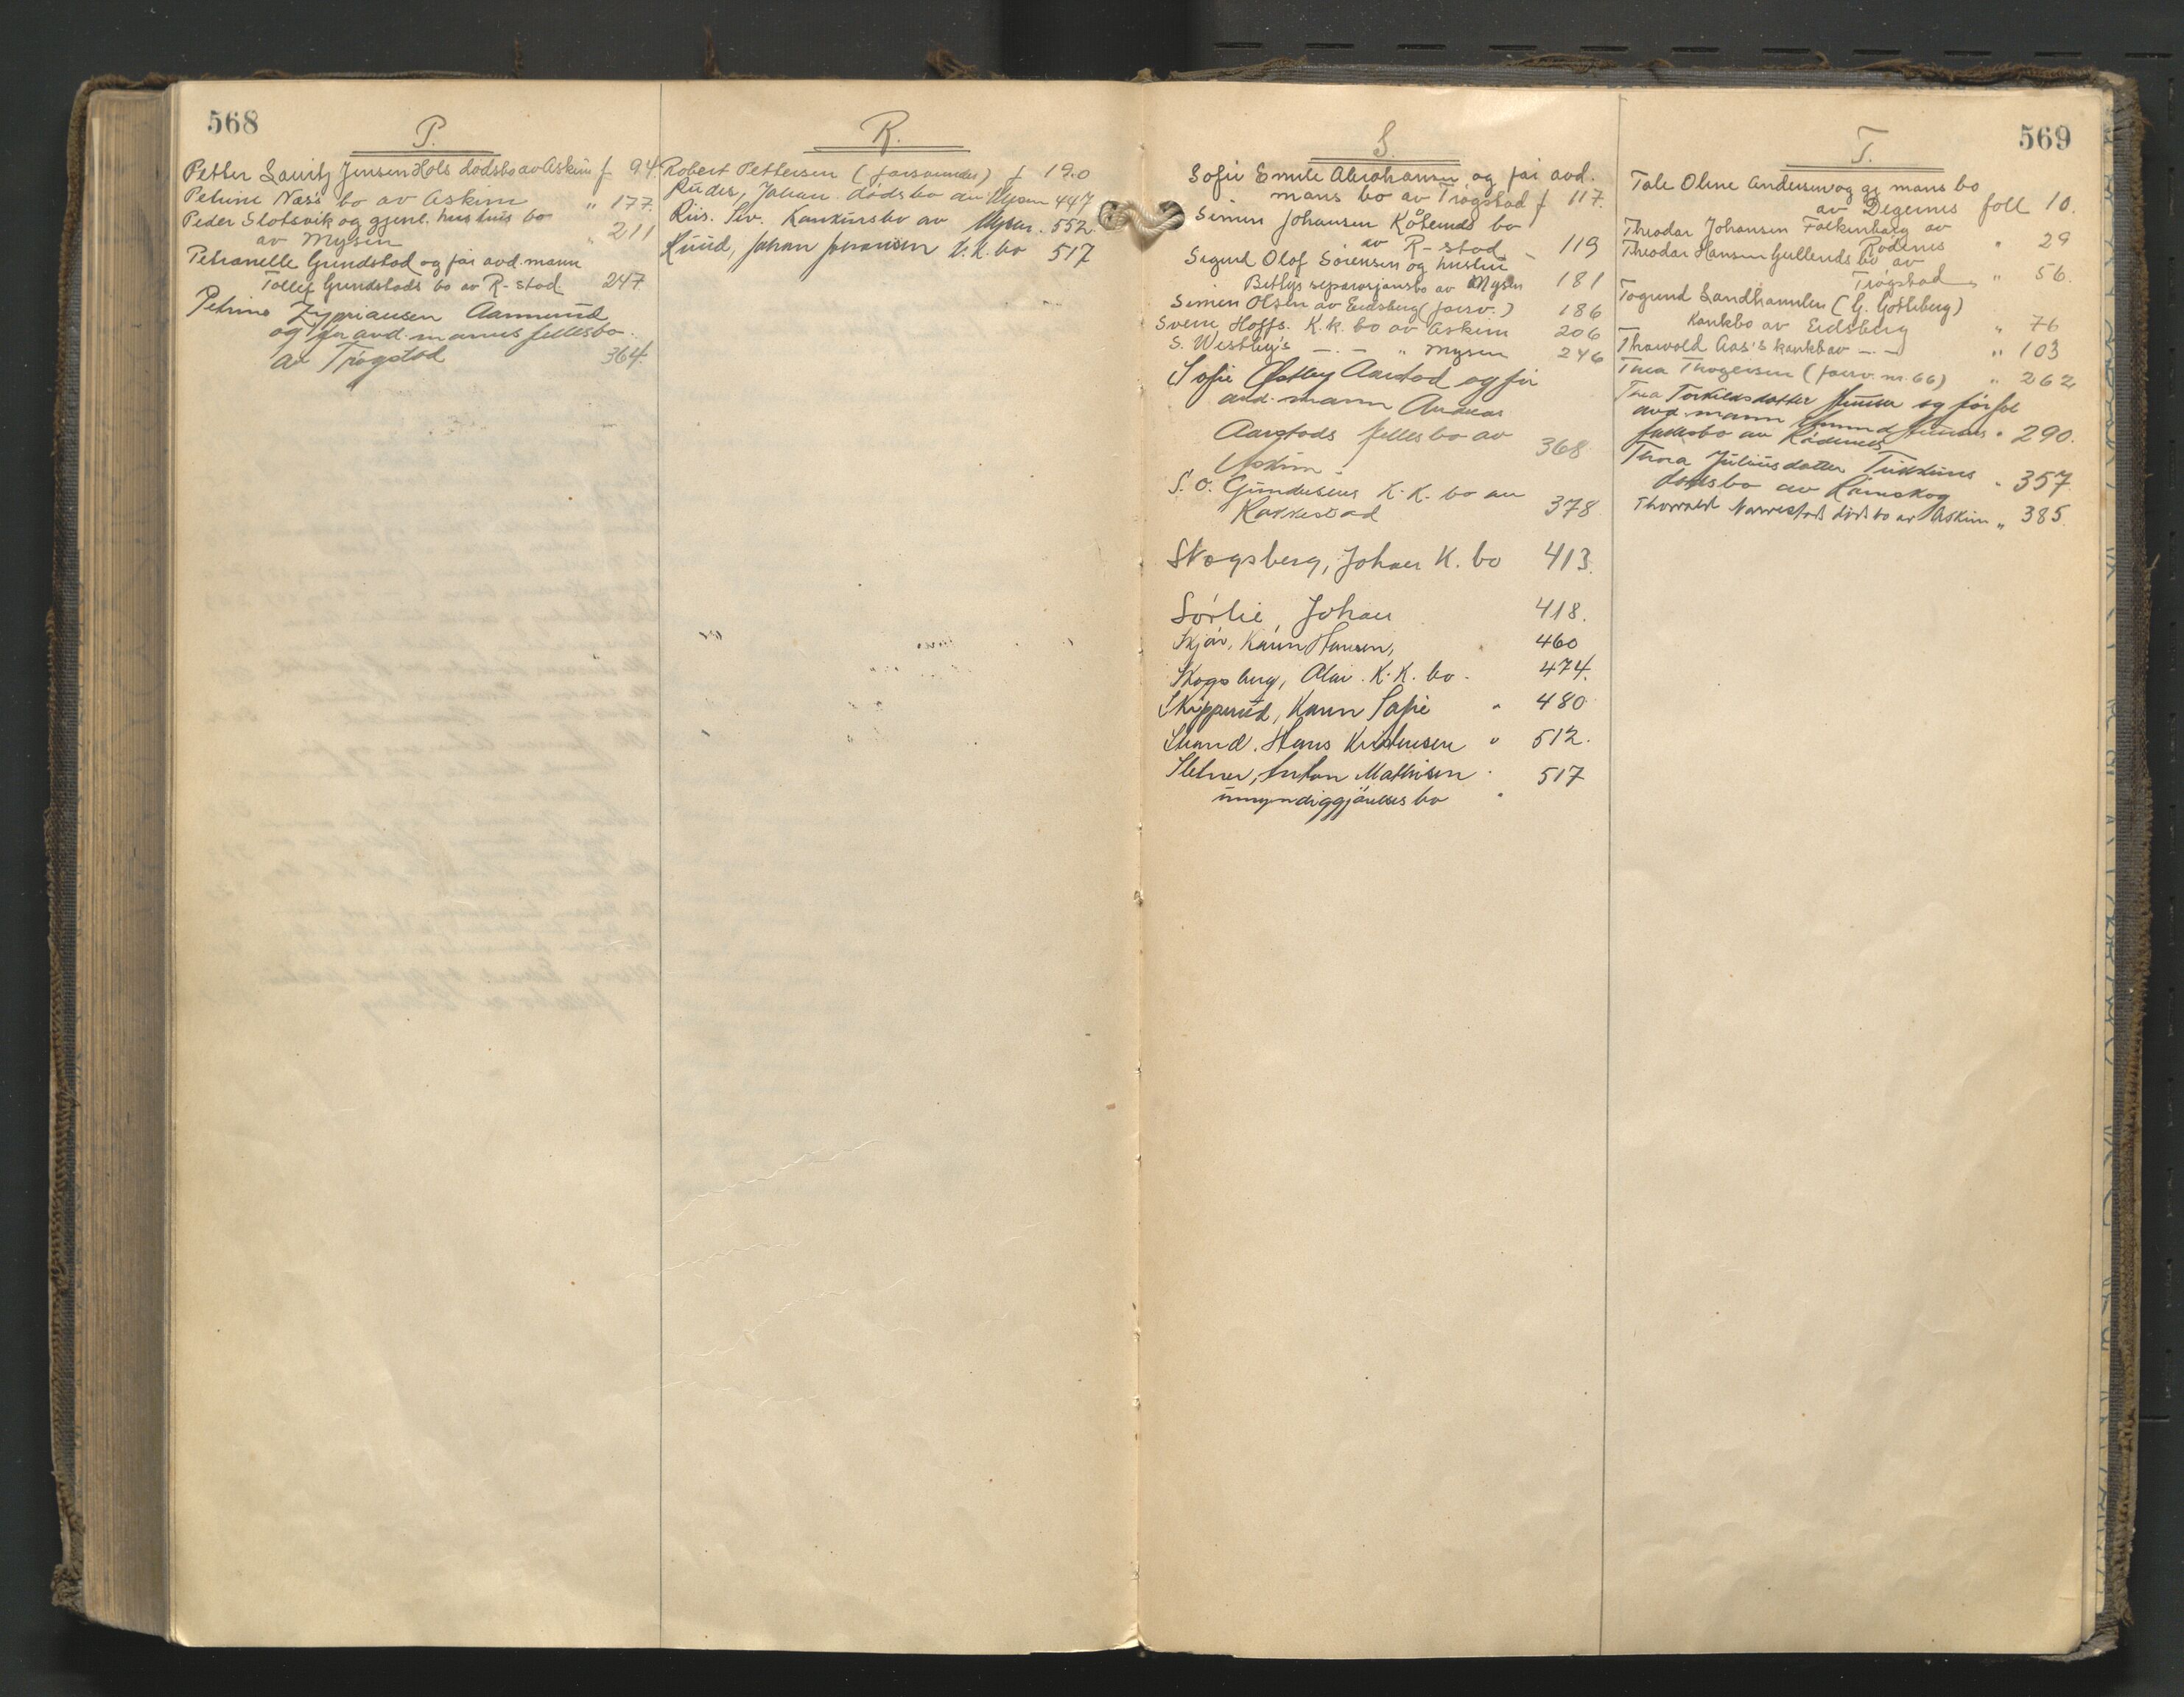 568
P.
Petter Lauritz Jensen Hols dødsbo av Askim f 94
Petrine Næss bo av Askim " 177.
Peder Slotsvik og gjenl. hustrus bo
av Mysen " 211
Petranelle Grindstad og før avd. mann
Tollef Grindstads bo av R-stad. 247.
Petrine Zypriansen Aamund
og før avd. manns fellesbo.
av Trøgstad 364.
R.
Robert Pettersen (forsvunden) f 190
Ruder, Johan dødsbo av Mysen 447
Riis. Konkursbo av Mysen. 552.
Ruud, Johan Johansen K.K. bo 517
S.
Sofie Emilie Abrahamsen og før avd.
mans bo av Trøgstad f 117.
Simen Johansen Kåterud's bo
av R-stad - 119
Sigurd Olof Sørensen og hustru
Betlys separasjonsbo av Mysen 181
Simen Olsen av Eidsberg (forsv.) 186
Svein Hoffs. K.k. bo av Askim 206
S. Westby's -.- " Mysen 246
Sofie Østby Aarstad og før
avd. mann Andreas
Aarstads fellesbo av 368
Askim.
S. O. Gundersens K.K. bo av
Rakkestad 378
Skogsberg, Johan K. bo 413.
Sørlie, Johan 418.
Skjør, Karin Hansen, 460
Skogsberg, Olav. K.K. bo. 474.
Skipperud, Karen Sofie " 480
Strand. Hans Kristensen " 512.
Sletner, Anton Mathisen. 517
umyndiggjørelses bo "
569
T.
Tale Oline Andersen og gj. mans bo
av Degernes foll 10.
Theodor Johansen Falkenberg av
Rødenes " 29
Theodor Hansen Gullerud's bo av
Trøgstad " 56.
Togrund Sandhammeren (G. Gøtteberg)
Konkbo av Eidsberg " 76
Thorvold Aas's konkb av -.- " 103
Thea Thogersen (forsv. nr. 66) " 262
Thea Torkildsdatter og før
avd. mann
fellesbo av Rødenes " 290.
Thora Juliusdatter
dødsbo av Rømskog " 357
Thorvald Narvestads dødsbo av Askim " 385.